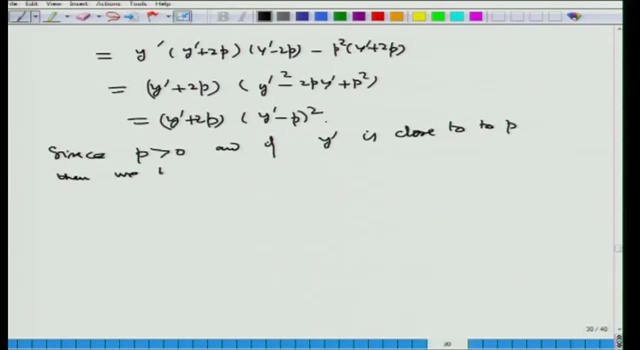 de Edit View Insert Actions Tools Help
= y'(y'+2p)(y'-2p) - p²(y'+2p)
= (y'+2p) (y'² - 2py' + p²)
= (y'+2p) (y'-p)².
Since p>0 and if y' is close to to p
then we
30 / 40
30